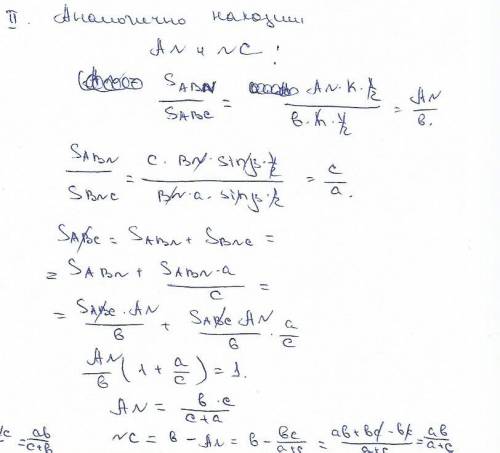 II. Аналогично находим
AN и NC:
S_ABN / S_ABC = AN · h · 1/2 / в · h · 1/2 = AN / в.
S_ABN / S_BNC = c · BN · sin β · 1/2 / BN · a · sin β · 1/2 = c / a.
S_ABC = S_ABN + S_BNC =
= S_ABN + S_ABN · a / c =
= S_ABC · AN / в + S_ABC · AN / в · a / c
AN / в (1 + a / c) = 1.
AN = в · c / c + a
= ab / c + в
NC = в − AN = в − вc / a + c = aв + вc − вc / a + c = aв / a + c